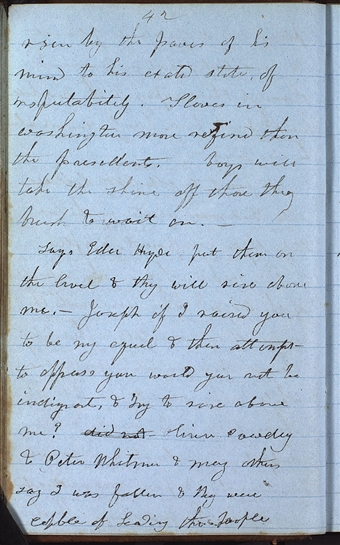 42
risen by the powers of his
mind to his exalted state of
respectability. Slaves in
washington more refined than
the president. boys will
take the shine off those they
brush & wait on. —
Says Elder Hyde put them on
the level & they will rise above
me. — Joseph if I raised you
to be my equal & then attempt
to oppress you would you not be
indignant, & try to rise above
me? did not Oliver Cowdey
& Peter Whitmer & many others
say I was fallen & they were
capble of leading the people